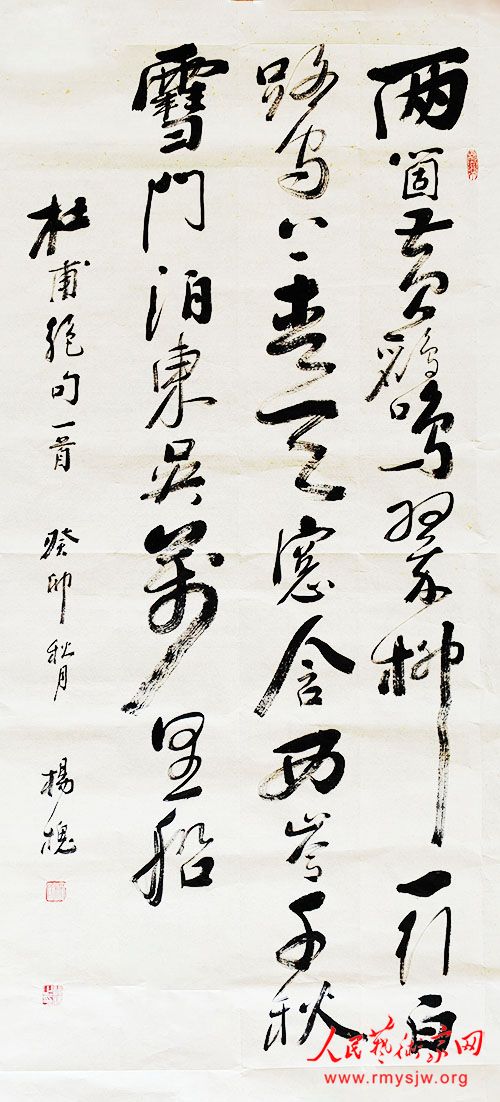 兩箇黃鸝鳴翠柳一行白
鷺上青天窓含西岺千秋
雪門泊東吳萬里船
杜甫絶句一首 癸卯秋月 楊槐
人民藝術家网
www.rmysjw.org